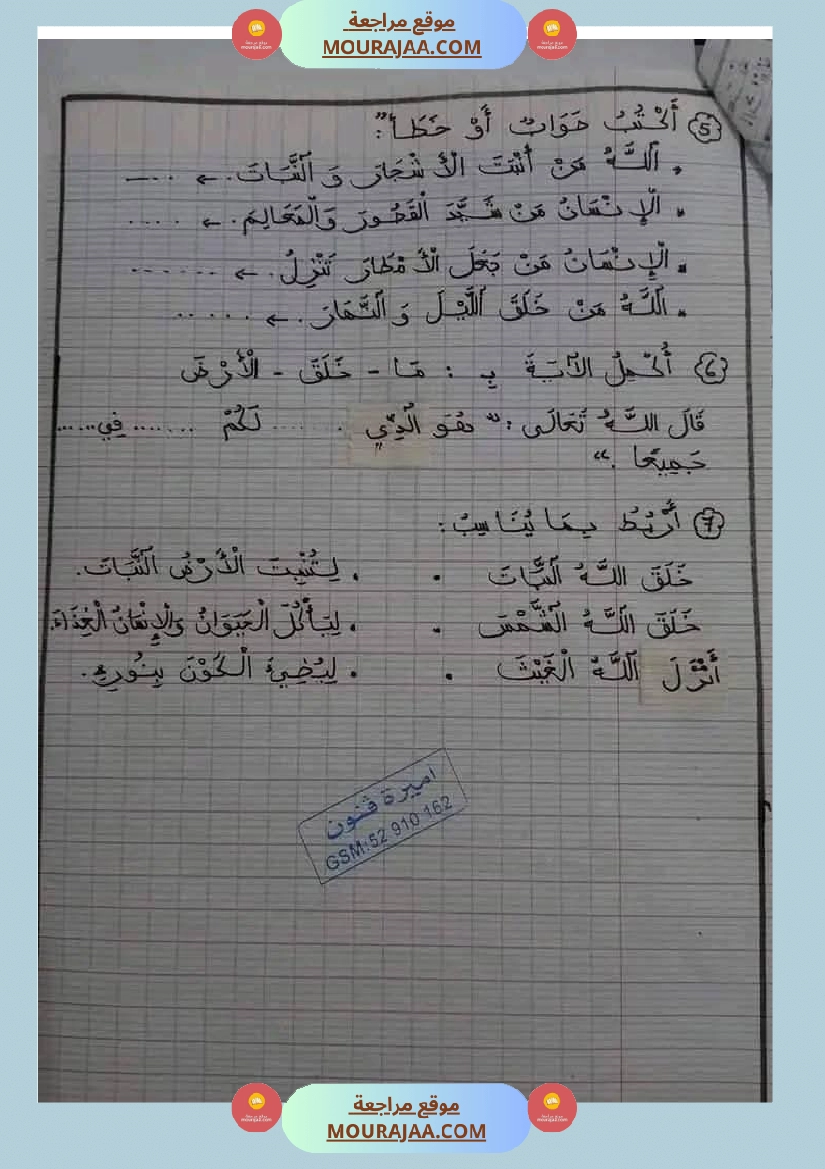 موقع مراجعة
MOURAJAA.COM
5 أَكْتُبُ صَوَابٌ أَوْ خَطَأ":
. اَللَّهُ مَنْ أَنْبَتَ الْأَشْجَارَ وَ النَّبَاتَ. ← ......
. الْإِنْسَانُ مَنْ شَيَّدَ الْقُصُورَ وَالْمَعَالِمَ. ← ....
. الْإِنْسَانُ مَنْ جَعَلَ الْأَمْطَارَ تَنْزِلُ. ← ......
. اَللَّهُ مَنْ خَلَقَ اللَّيْلَ وَ النَّهَارَ. ← ......
6 أُكْمِلُ الْآيَةَ بِـ : مَا - خَلَقَ - الْأَرْضَ
قَالَ اللَّهُ تَعَالَى : " هُوَ الَّذِي ...... لَكُمْ ...... فِي......
جَمِيعًا ."
7 أَرْبُطُ بِمَا يُنَاسِبُ:
خَلَقَ اللَّهُ النَّبَاتَ . . لِتُنْبِتَ الْأَرْضُ النَّبَاتَ.
خَلَقَ اللَّهُ الشَّمْسَ . . لِيَأْكُلَ الْحَيَوَانُ وَالْإِنْسَانُ الْغِذَاءَ.
أَنْزَلَ اللَّهُ الْغَيْثَ . . لِيُضِيءَ الْكَوْنَ بِنُورِهِ.
اميرة فنون
GSM:52 910 162
موقع مراجعة
MOURAJAA.COM